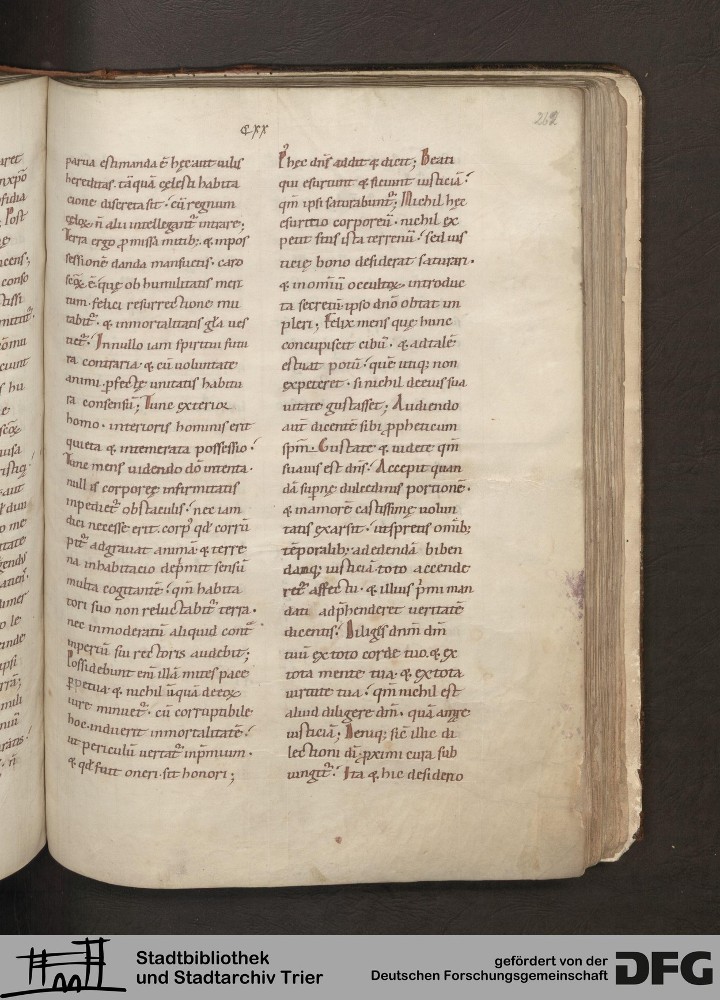 CXX
262
parua estimanda ē hęc aut uilis
hereditas. tāquā cęlesti habita
cione discreta sit. cū regnum
cęloꝝ n̄ alii intellegant᷑ intrare;
Terra ergo ꝓmissa mitib; & in pos
sessionē danda mansuetis. caro
sc̄oꝝ ē. quę ob humilitatis meri
tum. felici resurrectione mu
tabit᷑. & inmortalitatis gl̄a ues
tiet᷑. In nullo iam spiritui futu
ra contraria. & cū uoluntate
animi ꝑfectę unitatis habitu
ra consensū; Tunc exterior
homo. interioris hominis erit
quieta & intemerata possessio.
Tunc mens uidendo dō intenta.
nullis corporeę infirmitatis
inpediet᷑ obstaculis. nec iam
dici necesse erit. corp᷒ qd̄ corrū
pit᷑ adgrauat animā. & terre
na inhabitacio dep̄mit sensū
multa cogitantē. qm̄ habita
tori suo non reluctabit᷑ terra.
nec inmoderatū aliquid cont᷑
inperiū sui rectoris audebit;
Possidebunt em̄ illā mites pace
ꝑpetua. & nichil ūquā de eoꝝ
iure minuet᷑. cū corruptibile
hoc induerit inmortalitatē.
ut periculū uertat᷑ in p̄mium.
& qd̄ fuit oneri. sit honori;
P᷒ hęc dn̄s addit & dicit; Beati
qui esuriunt & siciunt iusticiā.
qm̄ ipsi saturabunt᷑; Nichil hęc
esuritio corporeū. nichil ex
petit sitis ista terrenū. sed ius
ticię bono desiderat saturari.
& in omniū occultoꝝ introduc
ta secretū ipso dn̄o obtat im
pleri; Felix mens quę hunc
concupiscit cibū. & ad talē
estuat potū. quē utiq; non
expeteret. si nichil de eius sua
uitate gustasset; Audiendo
aut̄ dicentē sibi ꝓpheticum
sp̄m. Gustate & uidete qm̄
suauis est dn̄s. Accepit quan
dā sup̄nę dulcedinis portionē.
& in amorē castissimę uolup
tatis exarsit. ut spretis omīb;
tēporalib; ad edendā biben
damq; iusticiā toto accende
ret᷑ affectu. & illius p̄mi man
dati adp̄henderet ueritatē
dicentis. Diliges dn̄m dm̄
tuū ex toto corde tuo. & ex
tota mente tua. & ex tota
uirtute tua. qm̄ nichil est
aliud diligere dm̄. quā amare
iusticiā; Deniq; sic̄ illic di
lectioni dī ꝓximi cura sub
iungit᷑. Ita & hic desiderio
Stadtbibliothek
und Stadtarchiv Trier
gefördert von der
Deutschen Forschungsgemeinschaft
DFG